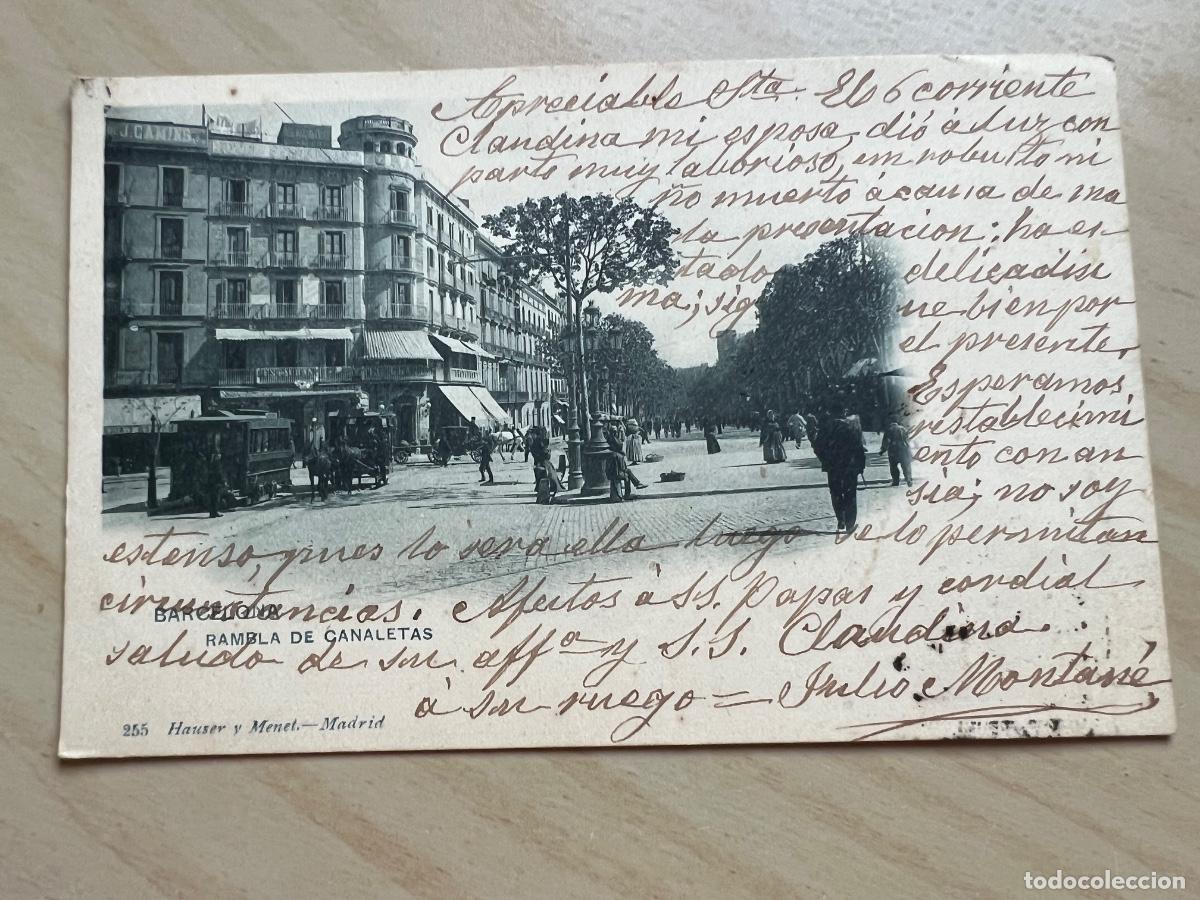 Apreciable Sta. El 6 corriente
Claudina mi esposa, dió á luz con
parto muy laborioso, un robusto ni
ño muerto á causa de ma
la presentación; ha es-
tado delicadísi
ma; sigue bien por
el presente.
Esperamos
restablecimi
ento con an
sia; no soy
extenso, pues lo sera ella luego se lo permitan
circunstancias. Afectos á SS. Papas y cordial
saludo de su affª y S.S. Claudina
á su ruego = Julio Montañé
J. CAMINS
BARCELONA
RAMBLA DE CANALETAS
255 Hauser y Menet.—Madrid
todocoleccion